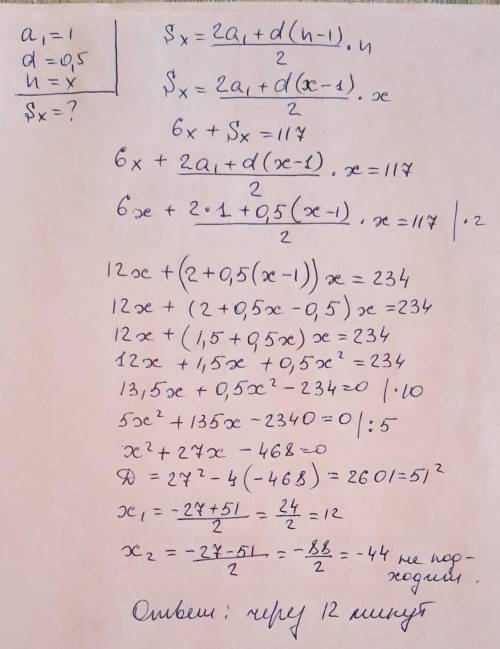 a₁ = 1
d = 0,5
n = x
Sx = ?
Sx = (2a₁ + d(n-1))/2 · n
Sx = (2a₁ + d(x-1))/2 · x
6x + Sx = 117
6x + (2a₁ + d(x-1))/2 · x = 117
6x + (2·1 + 0,5(x-1))/2 · x = 117 |·2
12x + (2 + 0,5(x-1))x = 234
12x + (2 + 0,5x - 0,5)x = 234
12x + (1,5 + 0,5x)x = 234
12x + 1,5x + 0,5x² = 234
13,5x + 0,5x² - 234 = 0 |·10
5x² + 135x - 2340 = 0 |:5
x² + 27x - 468 = 0
Д = 27² - 4(-468) = 2601 = 51²
x₁ = (-27+51)/2 = 24/2 = 12
x₂ = (-27-51)/2 = -88/2 = -44 не под-
ходит.
Ответ: через 12 минут